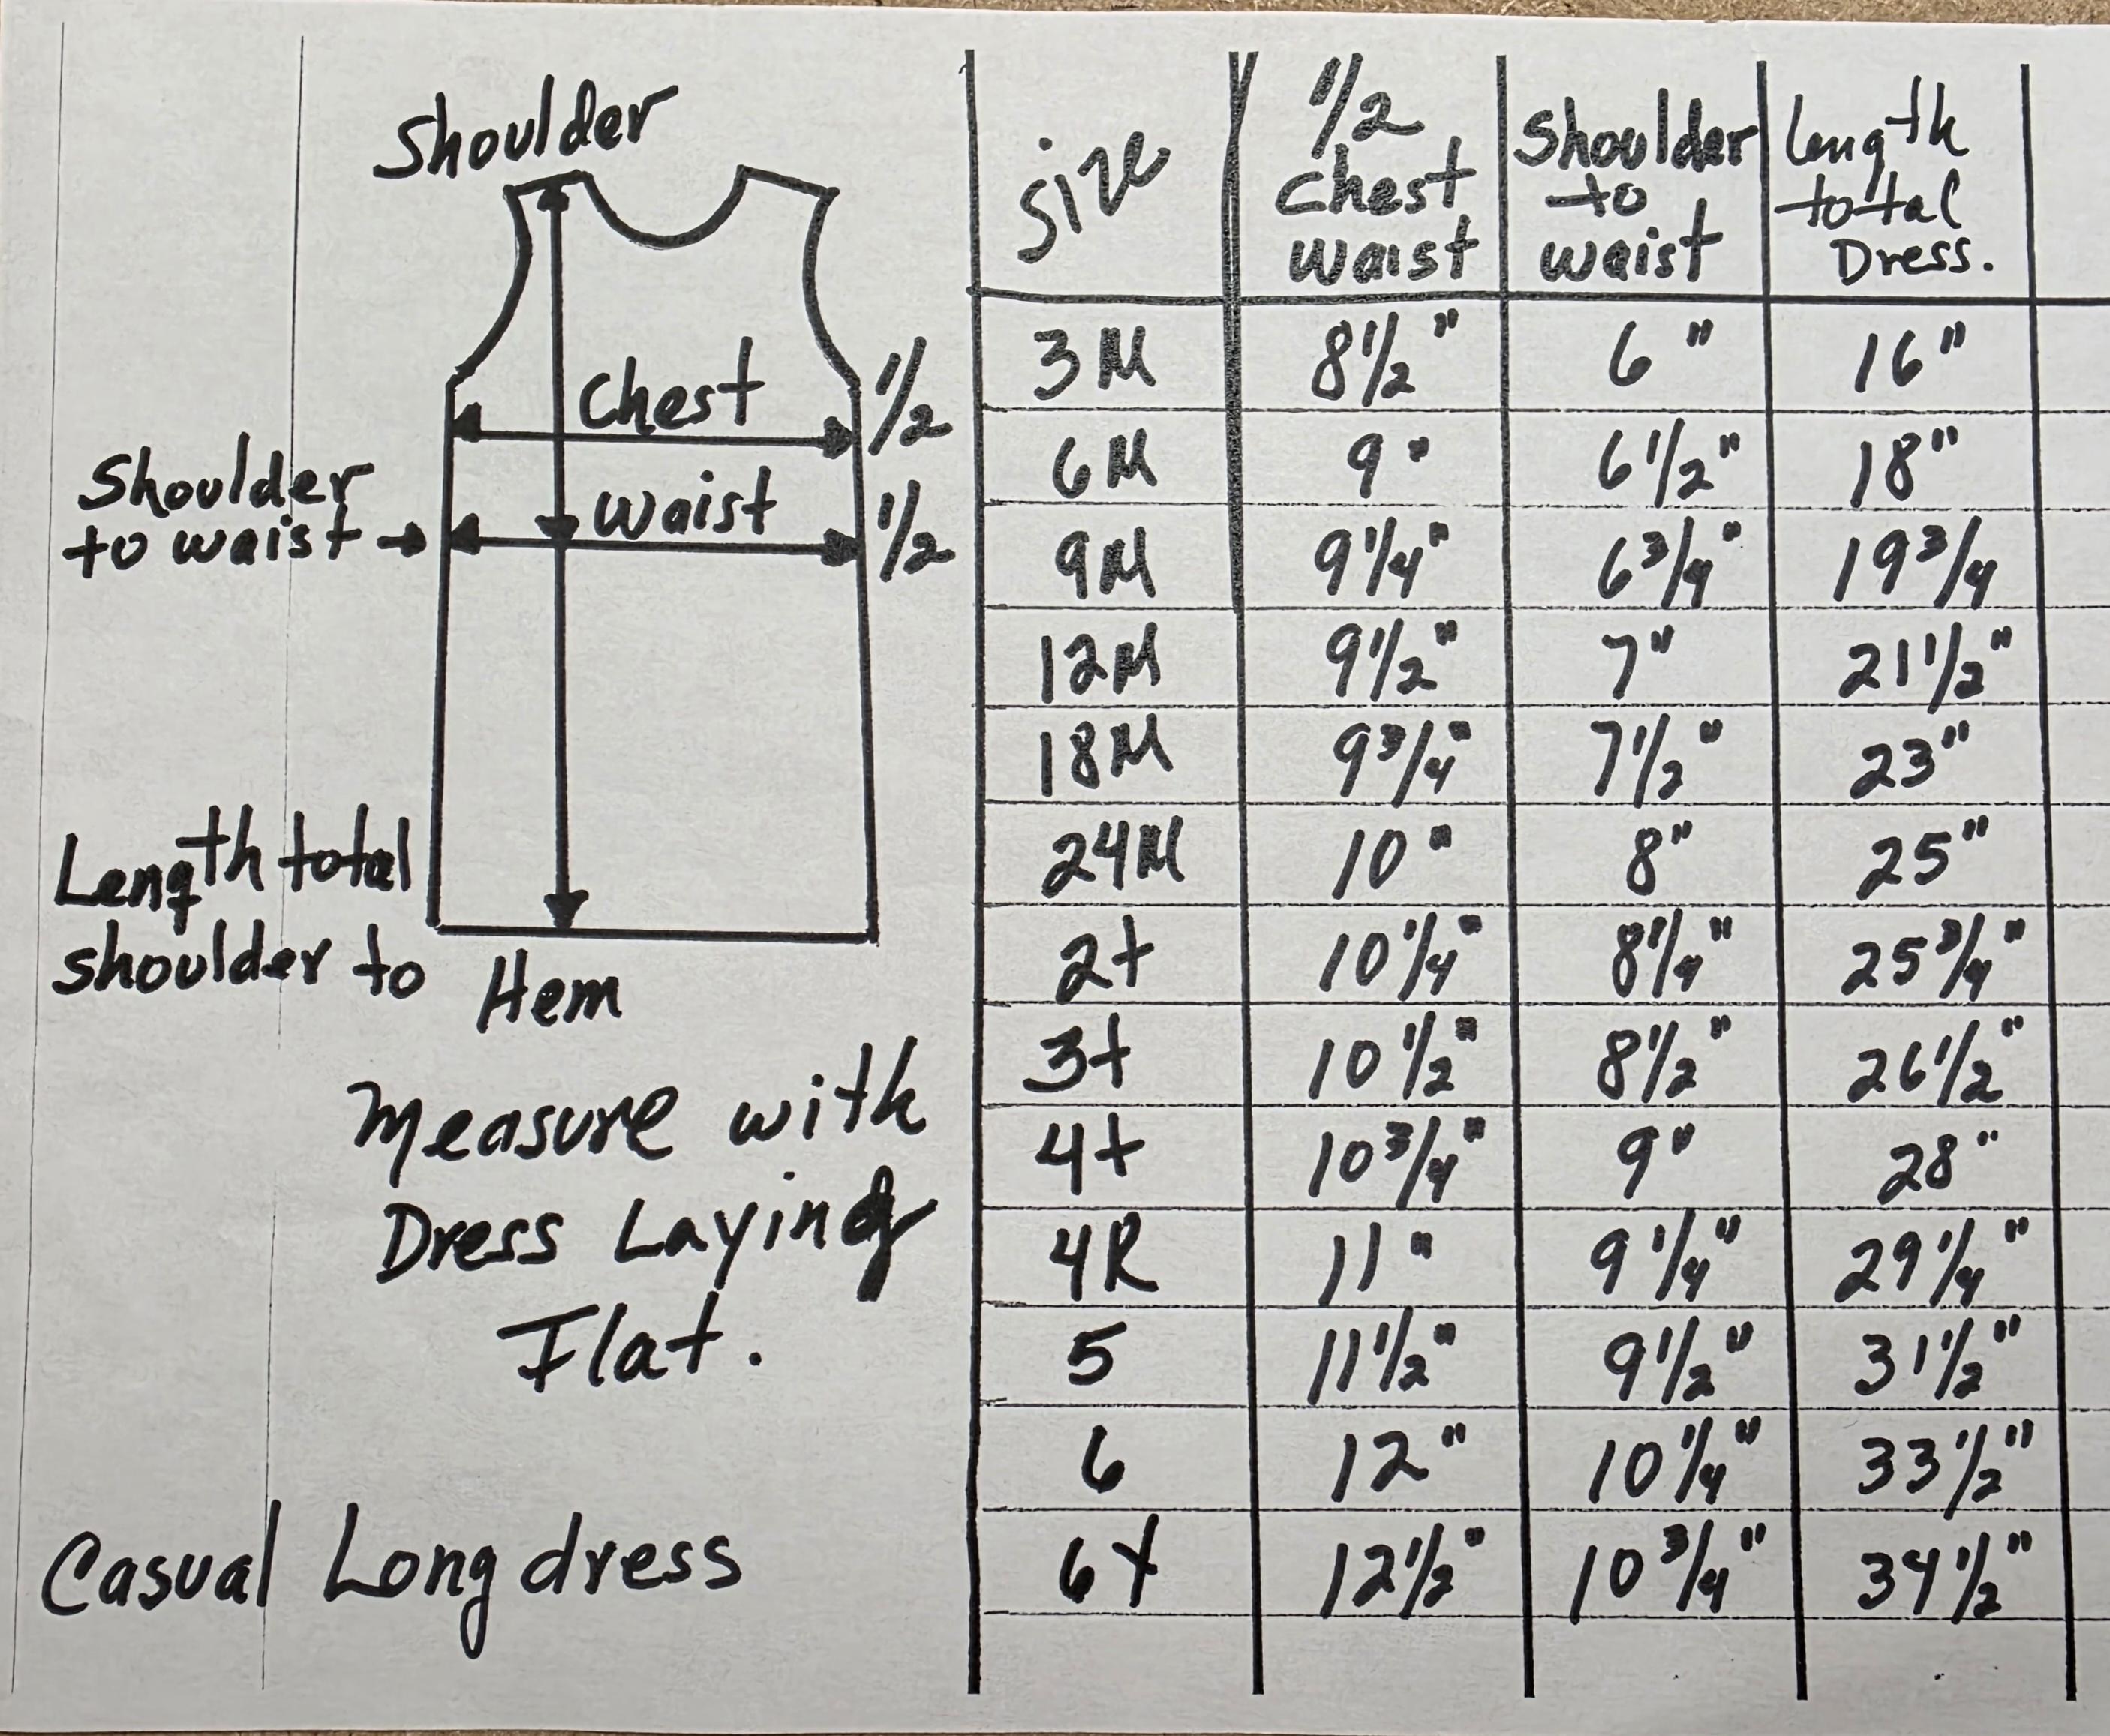 Shoulder
Chest 1/2
Shoulder
to waist → waist 1/2
Length total
shoulder to Hem
Measure with
Dress Laying
Flat.
Casual Long dress
Size | 1/2 Chest waist | Shoulder to waist | Length total Dress.
3M | 8 1/2" | 6" | 16"
6M | 9" | 6 1/2" | 18"
9M | 9 1/4" | 6 3/4" | 19 3/4
12M | 9 1/2" | 7" | 21 1/2"
18M | 9 3/4" | 7 1/2" | 23"
24M | 10" | 8" | 25"
2t | 10 1/4" | 8 1/4" | 25 3/4"
3t | 10 1/2" | 8 1/2" | 26 1/2"
4t | 10 3/4" | 9" | 28"
4R | 11" | 9 1/4" | 29 1/4"
5 | 11 1/2" | 9 1/2" | 31 1/2"
6 | 12" | 10 1/4" | 33 1/2"
6X | 12 1/2" | 10 3/4" | 34 1/2"